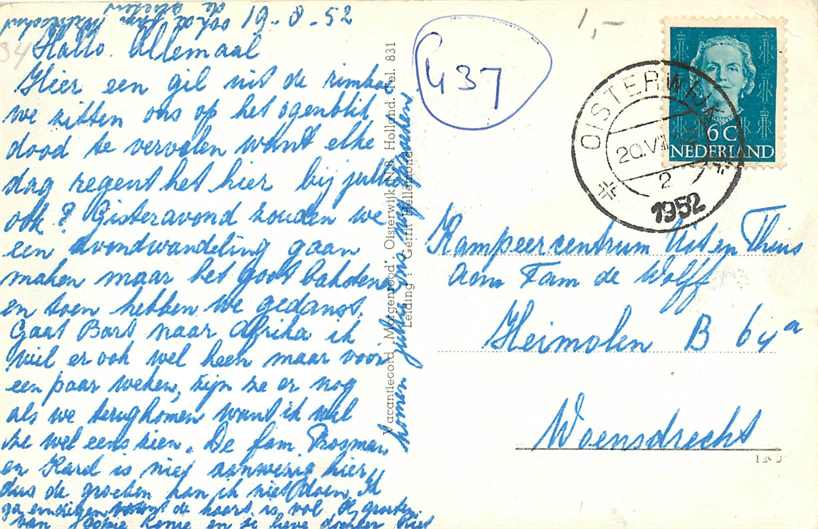 19-8-52
Hallo Allemaal
Hier een gil uit de rimboe
we zitten ons op het ogenblik
dood te vervelen want elke
dag regent het hier bij jullie
ook? Gisteravond zouden we
een avondwandeling gaan
maken maar het goot bakstenen
en toen hebben we gedanst.
Gaat Bart naar Afrika ik
wil er ook wel heen maar voor
een paar weken, zijn ze er nog
als we terugkomen want ik wil
ze wel eens zien. De fam.
en Karel is niet aanwezig hier
dus de groeten kan ik niet doen. Ik
ga eindigen de kaart is vol de groeten
van en je lieve dochter Riet
komen jullie ons nog
Vacantieoord „Morgenrood", Oisterwijk, N.B. Holland. Tel. 831
Leiding: Gerrit
437
1,-
OISTERWIJK
20.VIII
2
1952
6 C
NEDERLAND
Kampeercentrum Uit en Thuis
Aan Fam de Wolff
Heimolen B 64a
Woensdrecht